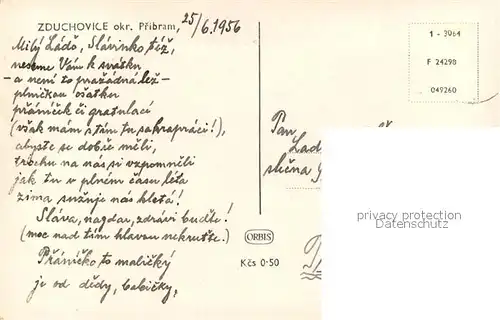 ZDUCHOVICE okr. Příbram,
25/6.1956
Milý Láďo, Slávinko též,
neseme Vám k svátku
- a není to prazádná lež -
plničkou ošatku
práníček či gratulací
(však mám s tím tu sakraprácí!),
abyste se dobře měli,
trochu na nás si vzpomněli
jak tu v plném času léta
zima sužuje nás kletá!
Sláva, nazdar, zdrávi buďte!
(moc nad tím hlavou nekruťte.)
Přáníčko to maličký
je od dědy, babičky,
ORBIS
Kčs 0·50
1 - 3064
F 24298
049260
Pan
slečna
privacy protection
AnsichtskartenCenter